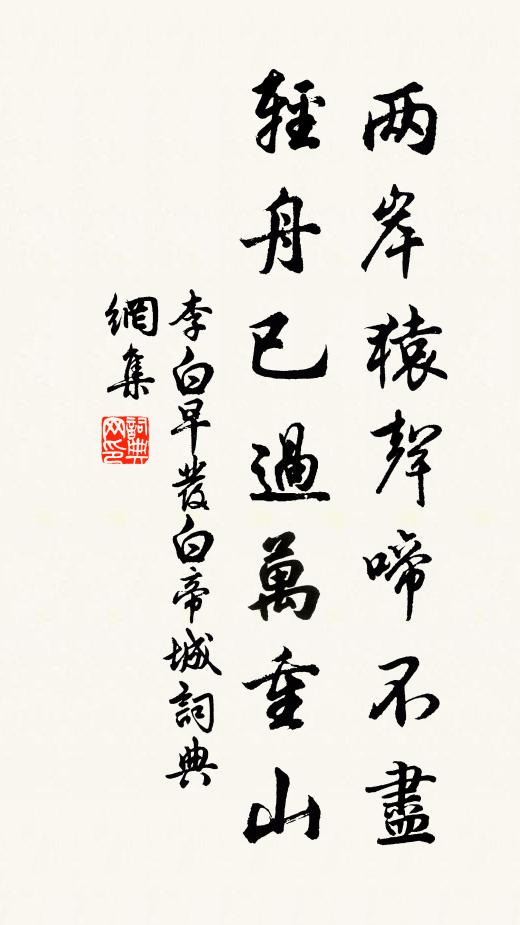 两岸猿聲啼不盡
輕舟已過萬重山
李白早發白帝城詞典
網集
詞典
网印